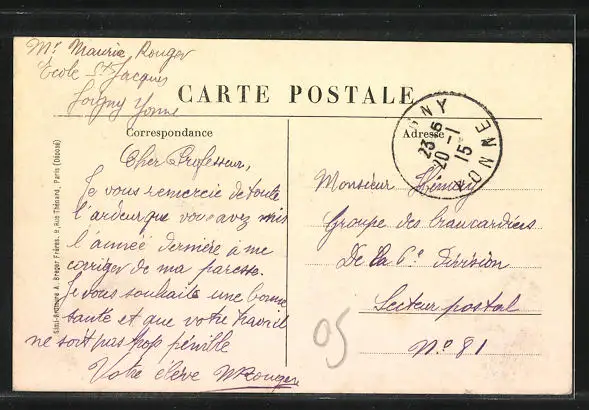 Mr Maurice Rouger
Ecole St Jacques
Joigny Yonne
CARTE POSTALE
Correspondance
Adresse
GNY
YONNE
23 5
20 -1
15
Cher Professeur,
Je vous remercie de toute
l'ardeur que vous avez mis
l'année dernière à me
corriger de ma paresse.
Je vous souhaite une bonne
santé et que votre travail
ne soit pas trop pénille
Votre élève MRouger
Monsieur
Groupe des brancardiers
De la 6e Division
Secteur postal
No 81
05
Simi-Bromure A. Breger Frères, 9, Rue Thénard, Paris (Déposé)